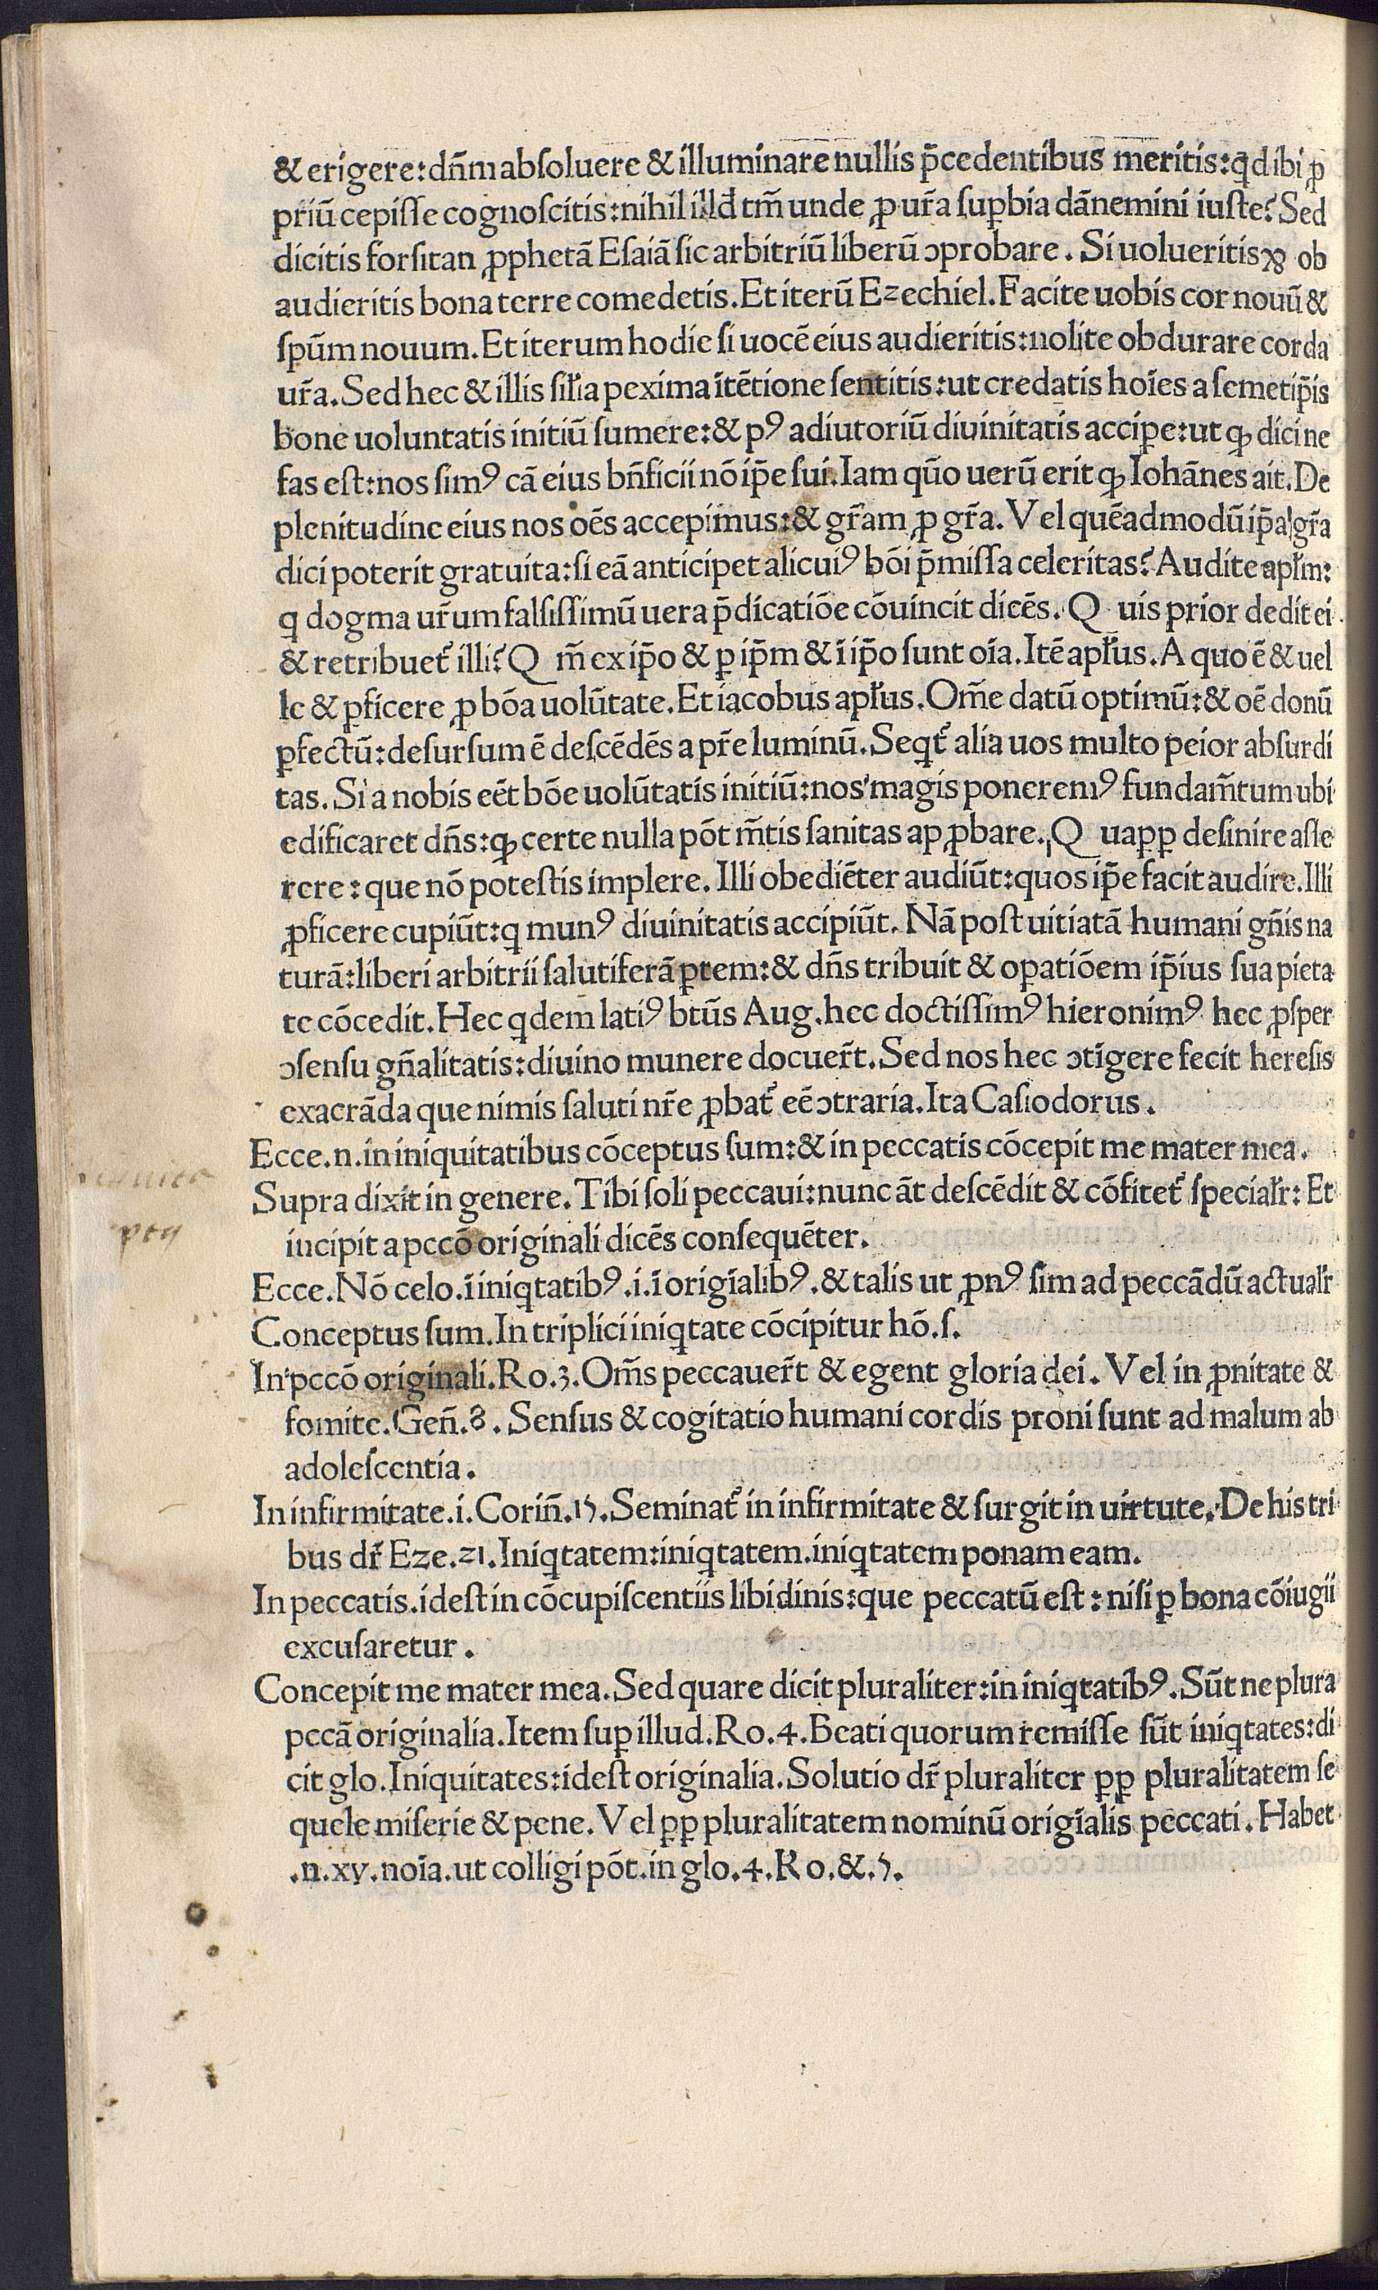 & erigere:dn̄m absoluere & illuminare nullis p̄cedentibus meritis:qd ibi ꝓ
priū cepisse cognoscitis:nihil illd̄ tm̄ unde ꝓ ur̄a suꝑbia dānemini iuste? Sed
dicitis forsitan ꝓphetā Esaiā sic arbitriū liberū ɔprobare. Si uolueritis ⁊ ob
audieritis bona terre comedetis. Et iterū Ezechiel. Facite uobis cor nouū &
spūm nouum. Et iterum hodie si uocē eius audieritis:nolite obdurare corda
ur̄a. Sed hec & illis silīa pexima ītētione sentitis:ut credatis hoīes a semetip̄is
bone uoluntatis initiū sumere:& pꝰ adiutoriū diuinitatis acciꝑe:ut ꝙ dici ne
fas est:nos simꝰ cā eius bn̄ficii nō ip̄e sui. Iam quō uerū erit ꝙ Iohānes ait. De
plenitudine eius nos oēs accepimus:& gr̄am ꝓ gr̄a. Vel quēadmodū ip̄a gr̄a
dici poterit gratuita:si eā anticipet alicuiꝰ bōi p̄missa celeritas? Audite apl̄m:
q dogma ur̄um falsissimū uera p̄dicatiōe cōuincit dicēs. Q uis prior dedit ei
& retribuet᷑ illi? Q m̄ ex ip̄o & ꝑ ip̄m & ī ip̄o sunt oīa. Itē apl̄us. A quo ē & uel
le & ꝑficere ꝓ bōa uolūtate. Et iacobus apl̄us. Om̄e datū optimū:& oē donū
ꝑfectū:desursum ē descēdēs a pr̄e luminū. Seqt᷑ alia uos multo peior absurdi
tas. Si a nobis eēt bōe uolūtatis initiū:nos magis poneremꝰ fundam̄tum ubi
edificaret dn̄s:ꝙ certe nulla pōt m̄tis sanitas apꝓbare. Q uaꝓꝑ desinire asse
rere:que nō potestis implere. Illi obediēter audiūt:quos ip̄e facit audire. Illi
ꝓficere cupiūt:q munꝰ diuinitatis accipiūt. Nā post uitiatā humani gn̄is na
turā:liberi arbitrii salutiferā ꝑtem:& dn̄s tribuit & oꝑatiōem ip̄ius sua pieta
te cōcedit. Hec qdem latiꝰ btūs Aug. hec doctissimꝰ hieronimꝰ hec ꝓsper
ɔsensu gn̄alitatis:diuino munere docuer̄t. Sed nos hec ɔtīgere fecit heresis
exacrāda que nimis saluti nr̄e ꝓbat᷑ eē ɔtraria. Ita Casiodorus.
Ecce.n.in iniquitatibus cōceptus sum:& in peccatis cōcepit me mater mea.
Supra dixit in genere. Tibi soli peccaui:nunc āt descēdit & cōfitet᷑ special̄r: Et
incipit a pccō originali dicēs consequēter.
Ecce. Nō celo.ī iniqtatibꝰ.i.ī origīalibꝰ.& talis ut ꝓnꝰ sim ad peccādū actual̄r
Conceptus sum. In triplici iniqtate cōcipitur hō.s.
In pccō originali. Ro.3. Om̄s peccauer̄t & egent gloria dei. Vel in ꝓnitate &
fomite. Gen̄.8. Sensus & cogitatio humani cordis proni sunt ad malum ab
adolescentia.
In infirmitate.i. Corin̄.15. Seminat᷑ in infirmitate & surgit in uirtute. De his tri
bus dr̄ Eze.21. Iniqtatem:iniqtatem.iniqtatem ponam eam.
In peccatis.idest in cōcupiscentiis libidinis:que peccatū est:nisi ꝑ bona cōiugii
excusaretur.
Concepit me mater mea. Sed quare dicit pluraliter:in iniqtatibꝰ. Sūt ne plura
pccā originalia. Item suꝑ illud. Ro.4. Beati quorum remisse sūt iniqtates:di
cit glo. Iniquitates:idest originalia. Solutio dr̄ pluraliter ꝓꝑ pluralitatem se
quele miserie & pene. Vel ꝓꝑ pluralitatem nominū origīalis peccati. Habet
.n.xv.noīa.ut colligi pōt.in glo.4. Ro.&.5.